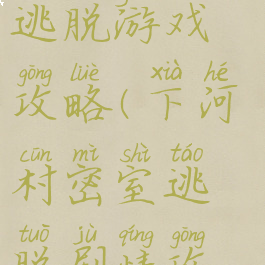 逃脱游戏
gōng lüè xià hé
攻略(下河
cūn mì shì táo
村密室逃
tuō jù qíng gōng
脱剧情攻